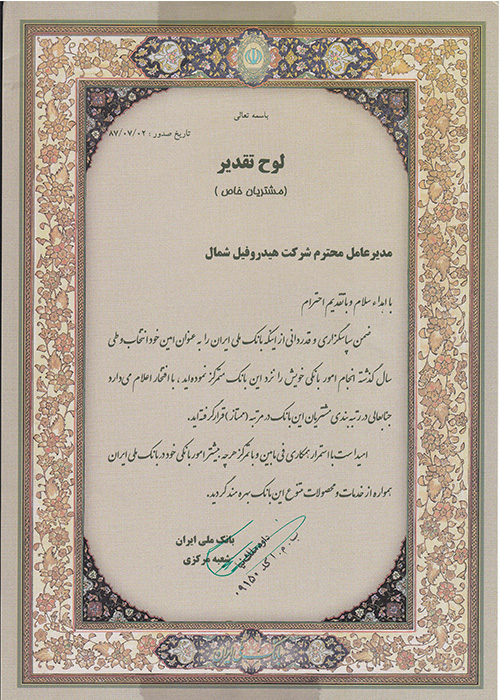 باسمه تعالی
تاریخ صدور : ۸۷/۰۷/۰۲
لوح تقدیر
(مشتریان خاص )
مدیرعامل محترم شرکت هیدروفیل شمال
با اهداء سلام و با تقدیم احترام
ضمن سپاسگزاری و قدردانی از اینکه بانک ملی ایران را به عنوان امین خود انتخاب و طی
سال گذشته انجام امور بانکی خویش را نزد این بانک متمرکز نموده‌اید ، با افتخار اعلام می‌دارد
جنابعالی در رتبه بندی مشتریان این بانک در مرتبه (ممتاز) قرار گرفته‌اید.
امید است با استمرار همکاری فی مابین و با تمرکز هر چه بیشتر امور بانکی خود در بانک ملی ایران
همواره از خدمات و محصولات متنوع این بانک بهره مند گردید.
بانک ملی ایران
شعبه مرکزی
ب . م . ا کد ۰۹۱۵۰